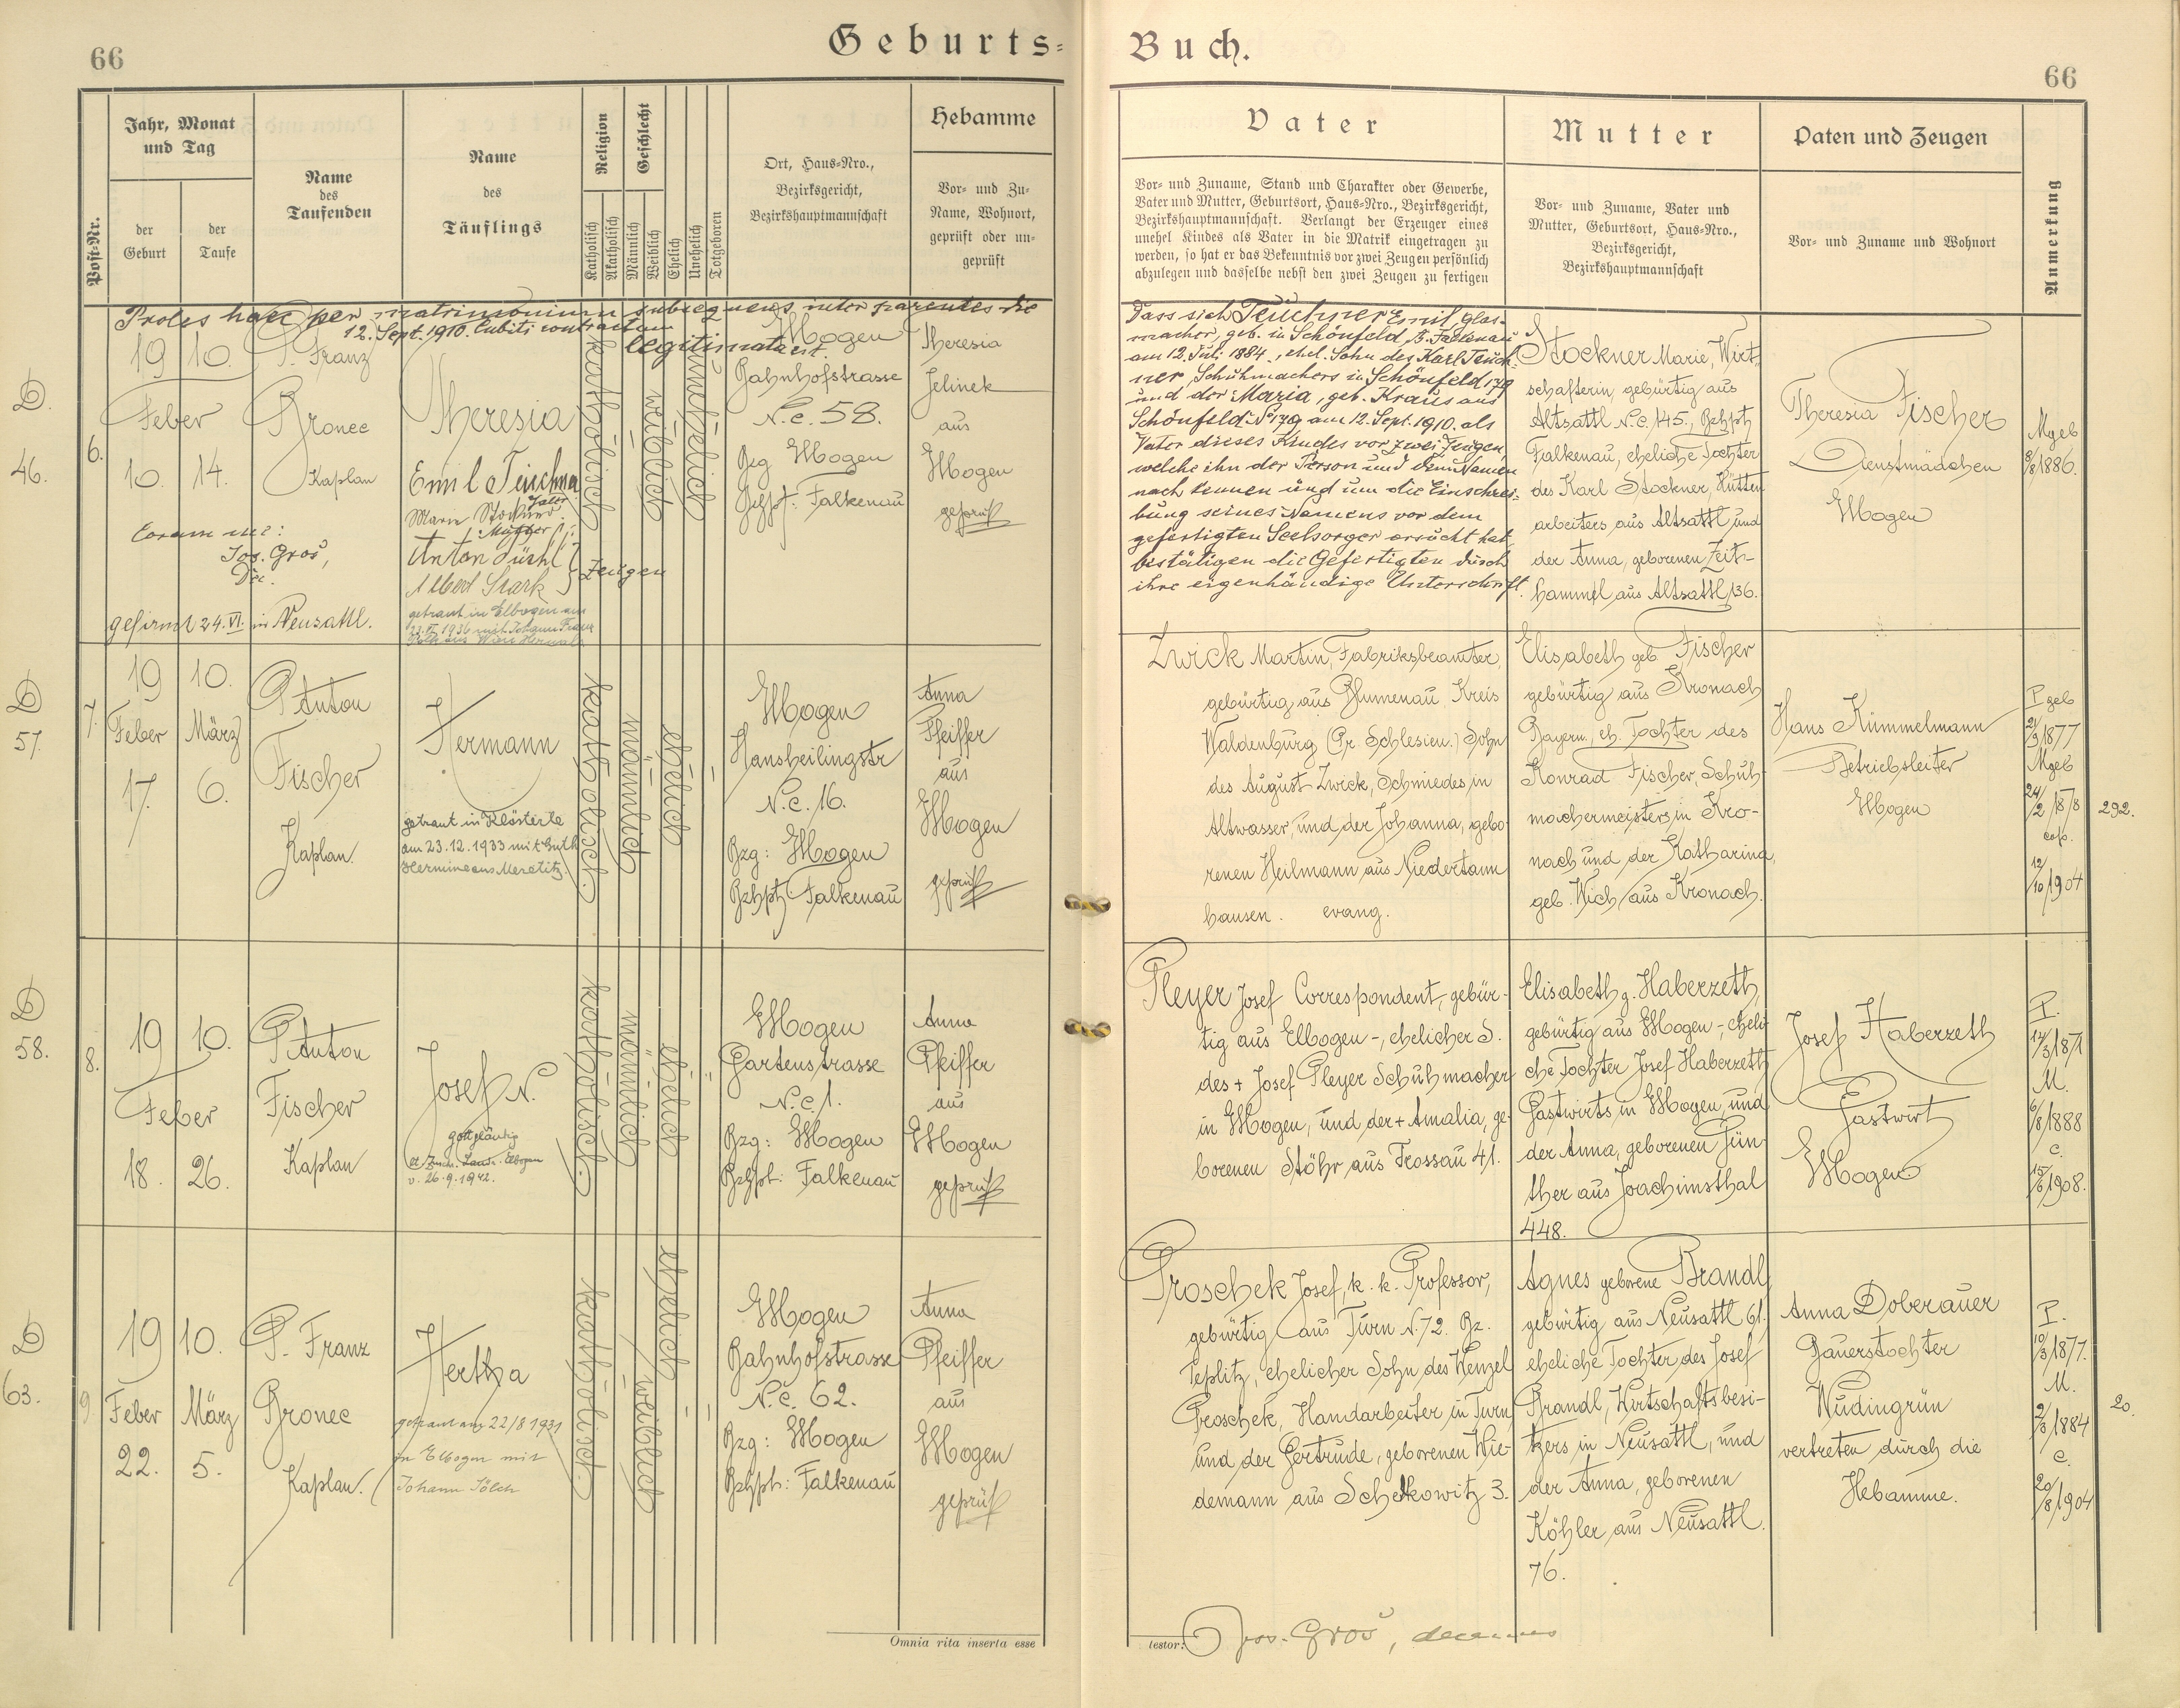 66
Geburts-
Jahr, Monat
und Tag
Post-Nr.
der
Geburt
der
Taufe
Name
des
Taufenden
Name
des
Täuflings
Religion
Katholisch
Akatholisch
Geschlecht
Männlich
Weiblich
Ehelich
Unehelich
Totgeboren
Ort, Haus-Nro.,
Bezirksgericht,
Bezirkshauptmannschaft
Hebamme
Vor- und Zu-
Name, Wohnort,
geprüft oder un-
geprüft
Proles haec per matrimonium subsequens inter parentes die
12. Sept. 1910. Cubiti contractum
legitimata est.
D.
46.
6.
19 10.
Feber
10. 14.
P. Franz
Bronec
Kaplan
Theresia
Emil Teuchner
Vater
Marie Stockner
Mutter
Anton
Albert Stark
Zeugen
Coram me:
Jos. Groš,
Dec.
gefirmt 24.VI. in Neusattl.
getraut in Elbogen am
1936 mit Johann Franz
katholisch
weiblich
unehelich
Elbogen
Bahnhofstrasse
N.c. 58.
Bzg Elbogen
Bzhpt. Falkenau
Theresia
Jelinek
aus
Elbogen
geprüft
D
57.
7.
19 10.
Feber März
17. 6.
P. Anton
Fischer
Kaplan.
Hermann
getraut in Klösterle
am 23.12.1933 mit Guth
Hermine aus Meretitz.
katholisch.
männlich
ehelich
Elbogen
Hansheilingstr
N.c. 16.
Bzg: Elbogen
Bzhpt: Falkenau
Anna
Pfeiffer
aus
Elbogen
geprüft
D
58.
8.
19 10.
Feber
18. 26.
P. Anton
Fischer
Kaplan
Josef N.
gottgläubig
Landr. Elbogen
v. 26.9.1942.
katholisch.
männlich
ehelich
Elbogen
Gartenstrasse
N.c. 1.
Bzg: Elbogen
Bzhpt: Falkenau
Anna
Pfeiffer
aus
Elbogen
geprüft
D
63.
9.
19 10.
Feber März
22. 5.
P. Franz
Bronec
Kaplan.
Hertha
getraut am 22/8 1931
in Elbogen mit
Johann Sölch
katholisch
weiblich
ehelich
Elbogen
Bahnhofstrasse
N.c. 62.
Bzg: Elbogen
Bzhpt: Falkenau
Anna
Pfeiffer
aus
Elbogen
geprüft
Omnia rita inserta esse
Buch.
66
Vater
Vor- und Zuname, Stand und Charakter oder Gewerbe,
Vater und Mutter, Geburtsort, Haus-Nro., Bezirksgericht,
Bezirkshauptmannschaft. Verlangt der Erzeuger eines
unehel Kindes als Vater in die Matrik eingetragen zu
werden, so hat er das Bekenntnis vor zwei Zeugen persönlich
abzulegen und dasselbe nebst den zwei Zeugen zu fertigen
Mutter
Vor- und Zuname, Vater und
Mutter, Geburtsort, Haus-Nro.,
Bezirksgericht,
Bezirkshauptmannschaft
Paten und Zeugen
Vor- und Zuname und Wohnort
Anmerkung
Dass sich Teuchner Emil, Glas-
macher, geb. in Schönfeld, B. Falkenau
am 12. Juli 1884, ehel. Sohn des Karl Teuch-
ner, Schuhmachers in Schönfeld 179
und der Maria, geb. Kraus aus
Schönfeld N° 179 am 12. Sept. 1910. als
Vater dieses Kindes vor zwei Zeugen,
welche ihn der Person und dem Namen
nach kennen und um die Einschrei-
bung seines Namens vor dem
gefertigten Seelsorger ersucht hat,
bestätigen die Gefertigten durch
ihre eigenhändige Unterschrift.
Stockner Marie, Wirt-
schafterin, gebürtig aus
Altsattl N.c. 145., Bzhpt
Falkenau, eheliche Tochter
des Karl Stockner, Hütten
arbeiters aus Altsattl und
der Anna, geborenen Zeit-
hammel aus Altsattl 136.
Theresia Fischer
Dienstmädchen
Elbogen
M geb
8/8 1886.
Zwick Martin, Fabriksbeamter,
gebürtig aus Blumenau Kreis
Waldenburg (Pr. Schlesien.) Sohn
des August Zwick, Schmiedes in
Altwasser, und der Johanna, gebo-
renen Heilmann aus Niedertann
hausen. evang.
Elisabeth geb. Fischer
gebürtig aus Kronach
Bayern, eh. Tochter des
Konrad Fischer, Schuh-
machermeisters in Kro-
nach und der Katharina,
geb. Wich, aus Kronach.
Hans Kümmelmann
Betriebsleiter
Elbogen
P geb
21/9 1877
M geb
24/2 1878
cop.
12/10 1904
292.
Pleyer Josef Correspondent, gebür-
tig aus Elbogen-, ehelicher S.
des + Josef Pleyer Schuhmacher
in Elbogen, und der + Amalia, ge-
borenen Stöhr aus Trossau 41.
Elisabeth g. Haberzeth,
gebürtig aus Elbogen-, eheli-
che Tochter Josef Haberzeth
Gastwirts in Elbogen, und
der Anna, geborenen Gün-
ther aus Joachimsthal
448.
Josef Haberzeth
Gastwirt
Elbogen
P.
14/3 1871
M.
6/8 1888
c.
15/6 1908.
Proschek Josef, k. k. Professor,
gebürtig aus Turn N. 72. Bz.
Teplitz, ehelicher Sohn des Wenzel
Proschek, Handarbeiter in Turn
und der Gertrude, geborenen Wie-
demann aus Schelkowitz 3.
Agnes geborene Brandl,
gebürtig aus Neusattl 61,
eheliche Tochter des Josef
Brandl, Wirtschaftsbesi-
tzers in Neusattl, und
der Anna, geborenen
Köhler aus Neusattl.
76.
Anna Doberauer
Bauerstochter
Wudingrün
vertreten durch die
Hebamme.
P.
10/3 1877.
M.
2/3 1884
c.
20/8 1904
20.
testor: Jos. Groš, decanus